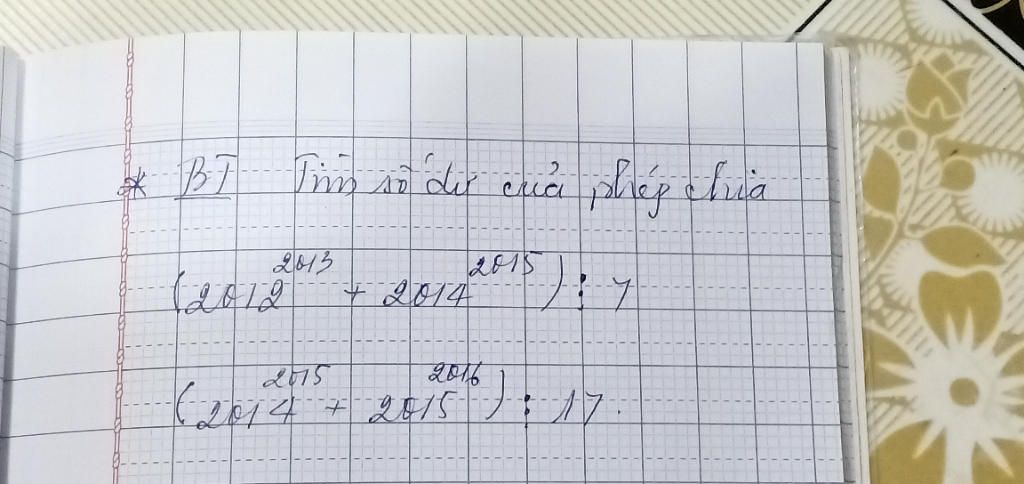 * BT Tìm số dư của phép chia
(2012^2013 + 2014^2015) : 7
(2014^2015 + 2015^2016) : 17.